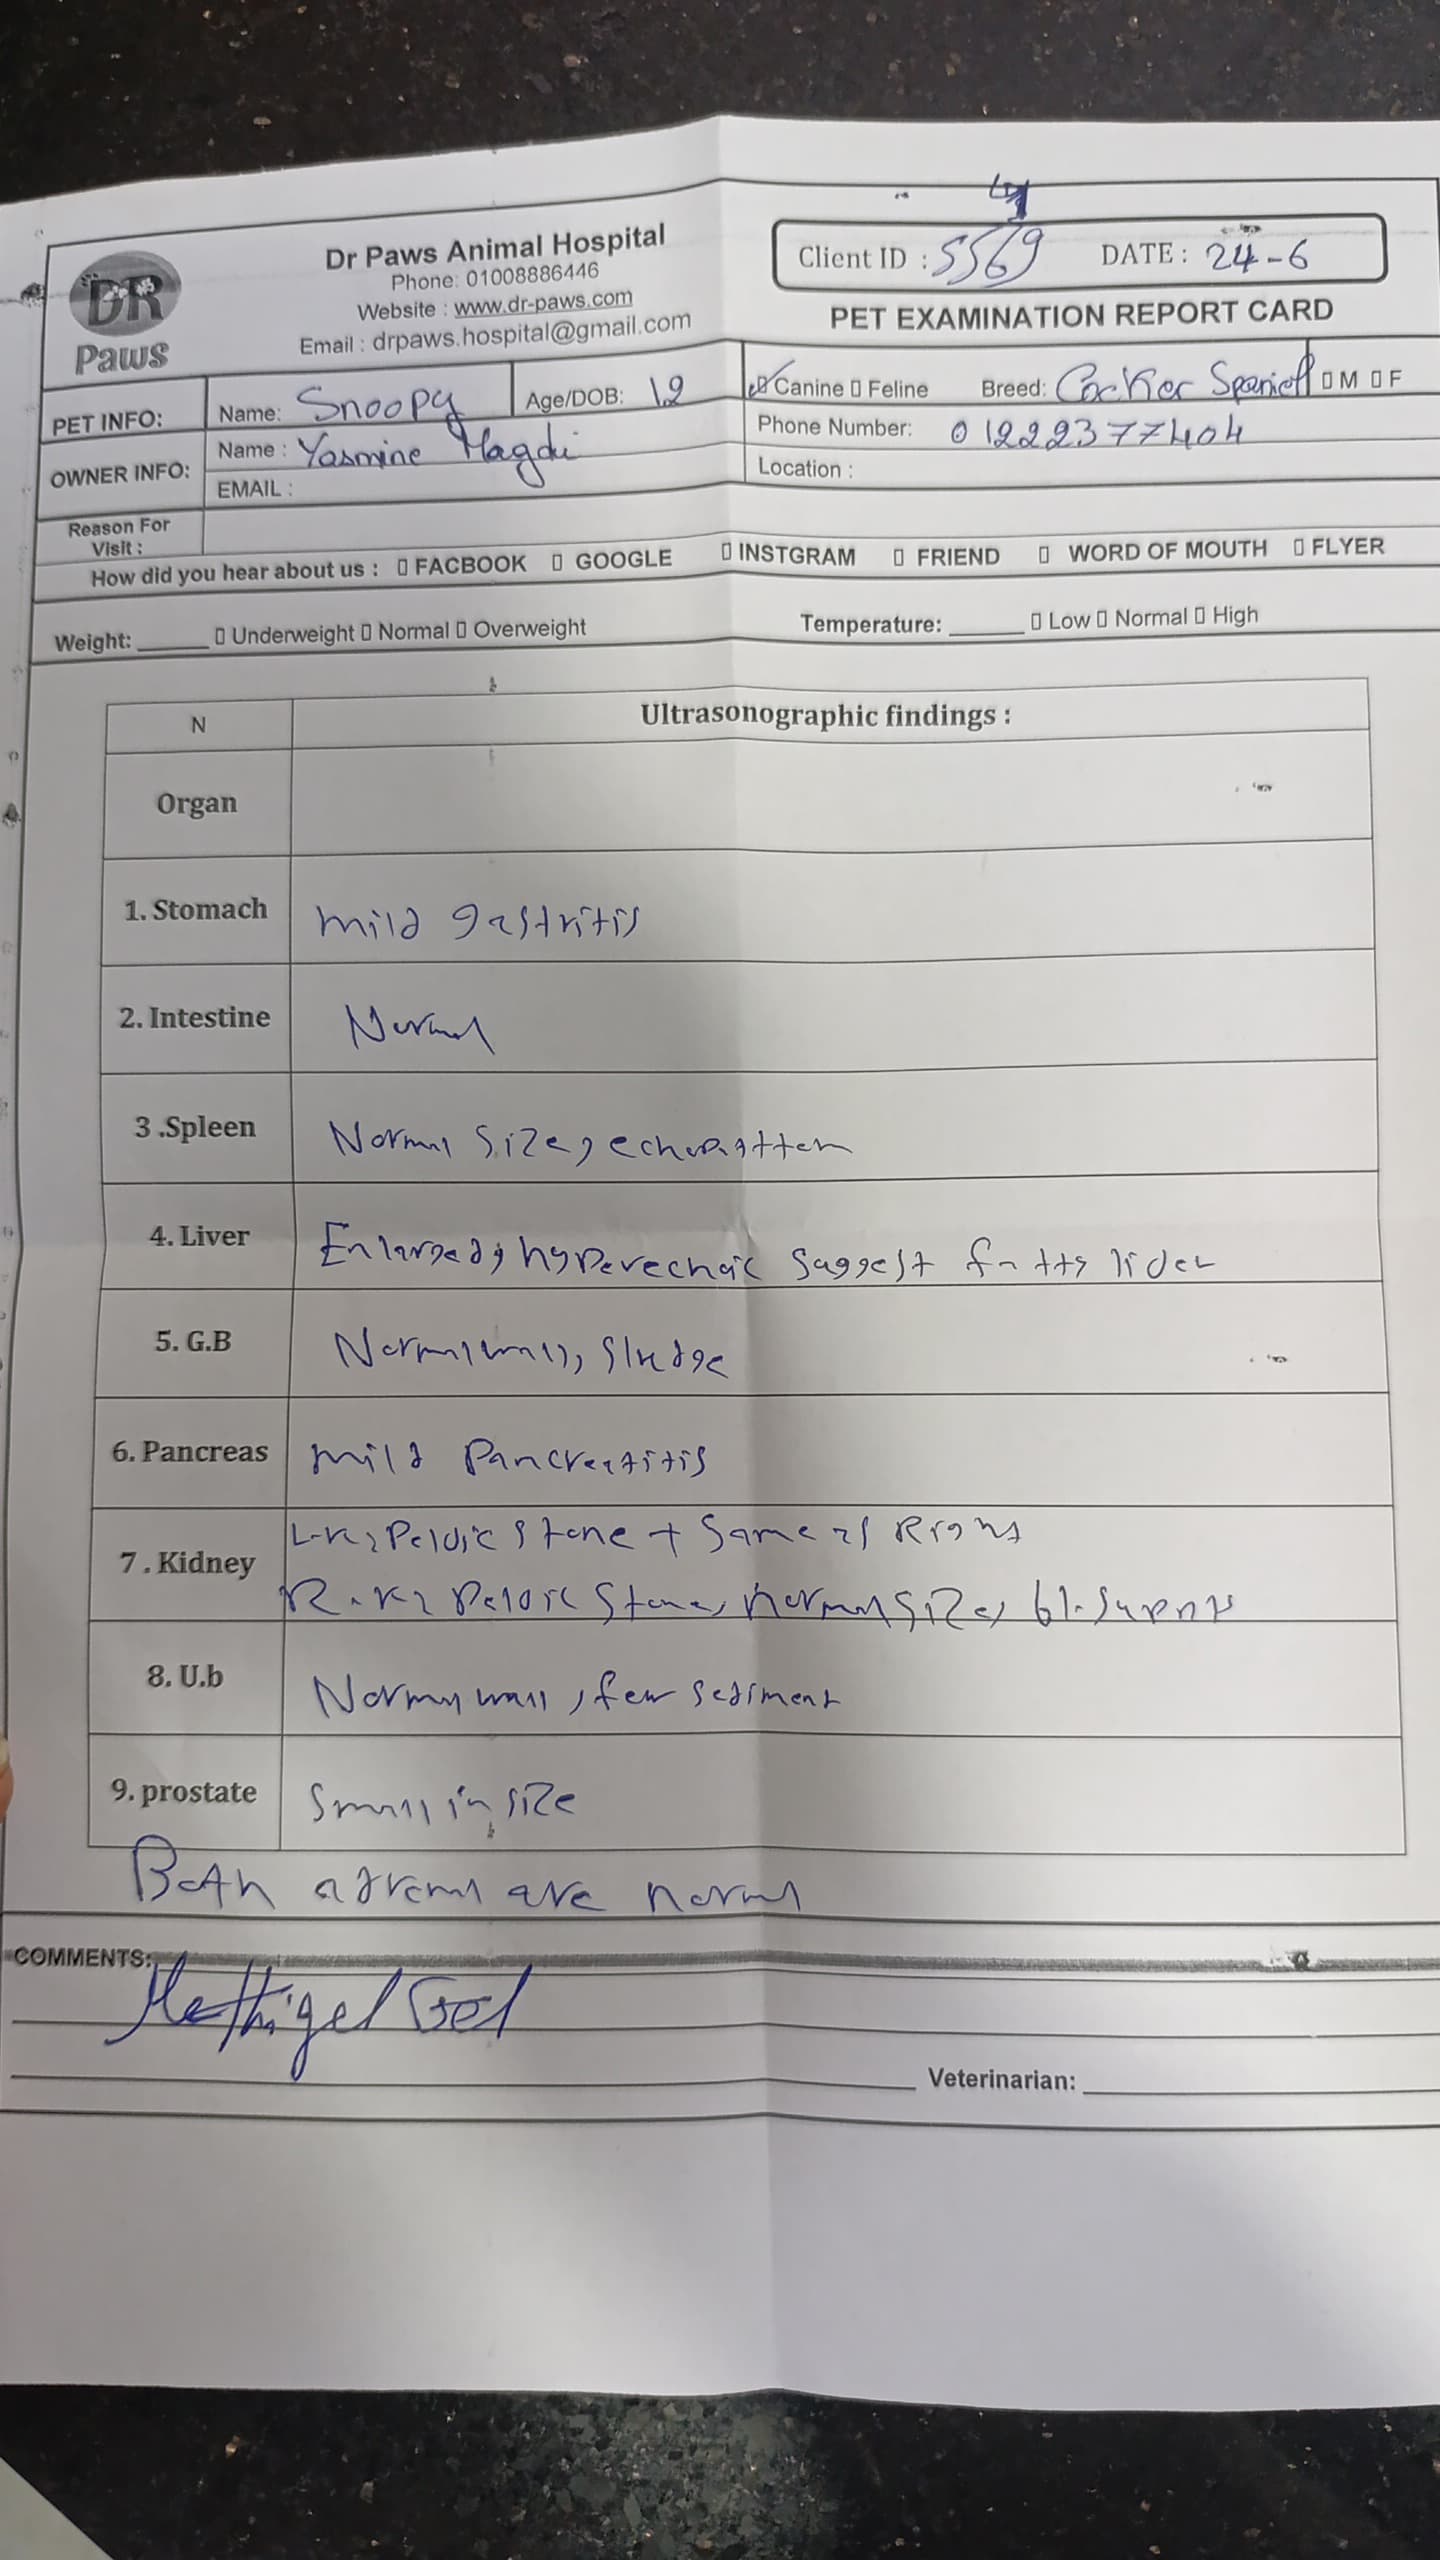 Client ID : 5569 DATE : 24-6
DR
Paws
Dr Paws Animal Hospital
Phone: 01008886446
Website : www.dr-paws.com
Email : drpaws.hospital@gmail.com
PET EXAMINATION REPORT CARD
PET INFO: Name: Snoopy Age/DOB: 12 Canine Feline Breed: Cocker Spaniel M F
OWNER INFO: Name : Yasmine Magdi Phone Number: 01222377404
EMAIL : Location :
Reason For
Visit :
How did you hear about us : FACBOOK GOOGLE INSTGRAM FRIEND WORD OF MOUTH FLYER
Weight: Underweight Normal Overweight Temperature: Low Normal High
N Ultrasonographic findings :
Organ
1. Stomach mild gastritis
2. Intestine Normal
3 .Spleen Normal size, echopattern
4. Liver Enlarged, hyperechoic suggest fatty liver
5. G.B Normal wall, sludge
6. Pancreas mild Pancreatitis
L.K, Pelvic stone + Same as Right
7 . Kidney
R.K, Pelvic stone, normal size,
8. U.b Normal wall, few sediment
9. prostate Small in size
Both adrenal are normal
COMMENTS:
Veterinarian: